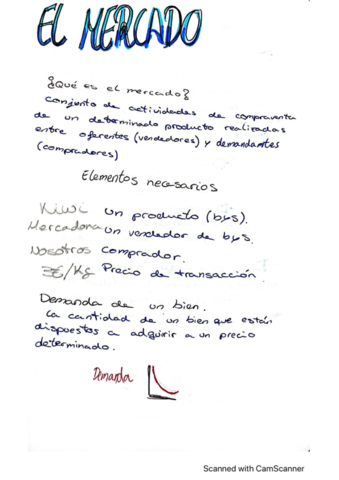 EL MERCADO
¿Qué es el mercado?
Conjunto de actividades de compraventa
de un determinado producto realizadas
entre oferentes (vendedores) y demandantes
(compradores)
Elementos necesarios
Kiwi un producto (bys).
Mercadona un vendedor de bys.
Nosotros comprador.
3€/Kg Precio de transacción
Demanda de un bien.
La cantidad de un bien que están
dispuestos a adquirir a un precio
determinado.
Demanda
Scanned with CamScanner